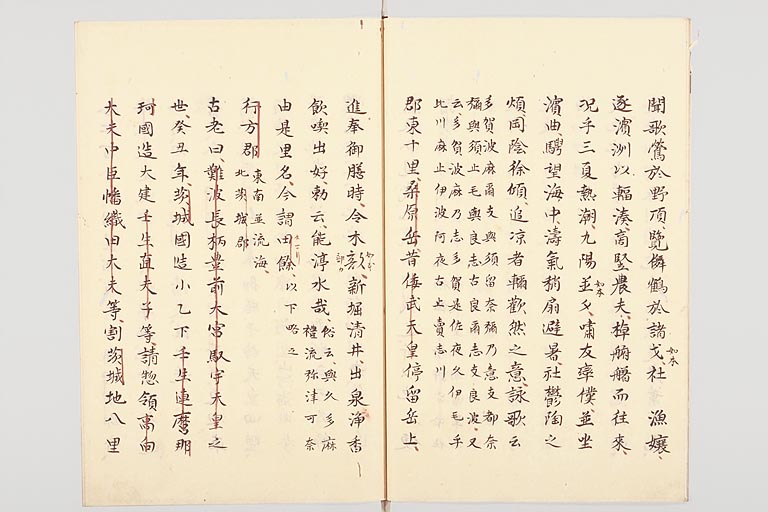 聞歌鶯於野頂、覽儛鶴於渚戈、社 漁嬢、
逐濱洲以輻湊、商竪農夫、棹𦨞艖而往來、
况乎三夏熱潮、九陽並 夕、嘯友率僕並坐
濱曲、騁望海中、濤氣稍扇、避暑、社鬱陶之
煩、岡陰徐傾、追凉者軫歡然之意、詠歌云
多賀波麻爾支与須留奈弥乃意支都奈
弥與須止毛與良志古良爾志支良波又
云多賀波麻乃志多賀是佐夜久伊毛乎
比川麻止伊波阿夜古止賣志川
郡東十里、桑原岳昔倭武天皇停留岳上、
進奉御膳時、令水部新堀清井、出泉淨香、
飲喫出好、勅云、能渟水哉、俗云與久多麻
禮流弥津可奈
由是里名、今謂田餘、以下略之
行方郡 東南並流海、
北茨城郡
古老曰、難波長柄豊前大宮馭宇天皇之
世、癸丑年、茨城國造小乙下壬生連麿、那
珂國造大建壬生直夫子等、請惣領高向
大夫中臣幡織田大夫等、割茨城地八里